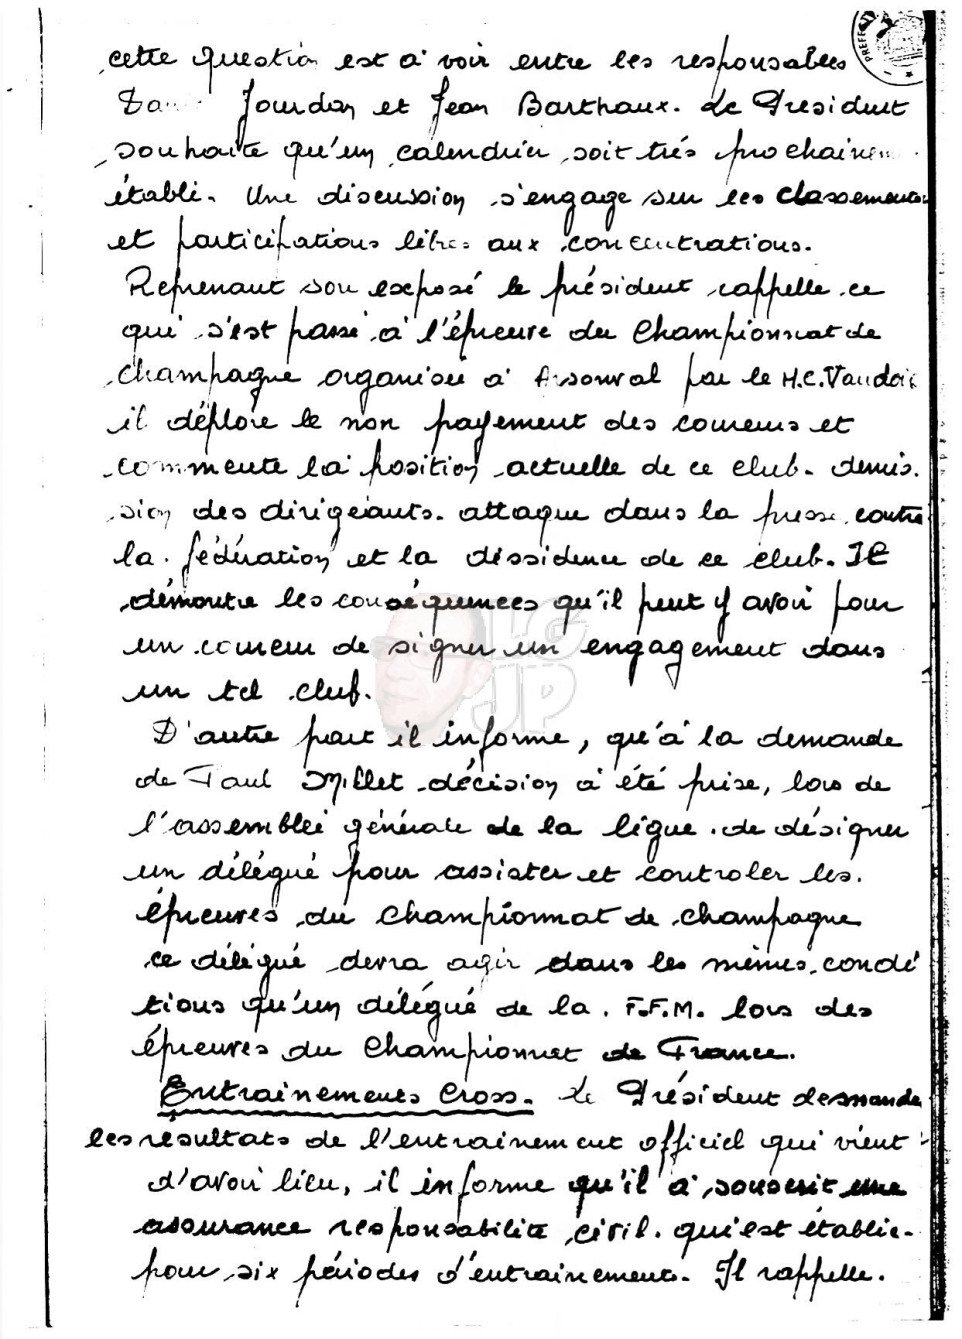 cette question est à voir entre les responsables
Jourdan et Jean Barthaux. Le President
souhaite qu'un calendrier soit trés prochainem
établi. Une discussion s'engage sur les classements
et participations libres aux concentrations.
Reprenant son exposé le président rappelle ce
qui s'est passé à l'épreuve du Championnat de
champagne organisée à Arsonval par le M.C. Vaudois
il déplore le non payement des coureurs et
commente la position actuelle de ce club. demis.
sion des dirigeants. attaque dans la presse contre
la fédération et la dissidence de ce club. Il
démontre les conséquences qu'il peut y avoir pour
un coureur de signer un engagement dans
un tel club.
D'autre part il informe, qu'à la demande
de Paul Millet décision à été prise, lors de
l'assemblée générale de la ligue. de désigner
un délégué pour assister et controler les.
épreuves du championnat de champagne
ce délégué devra agir dans les mêmes condi
tions qu'un délégué de la. F.F.M. lors des
épreuves du Championnat de France.
Entrainements Cross. Le Président demande
les résultats de l'entrainement officiel qui vient
d'avoir lieu, il informe qu'il à souscrit une
assurance responsabilité civil. qui est établie.
pour six périodes d'entrainement. Il rappelle.
LG
JP
PREFE